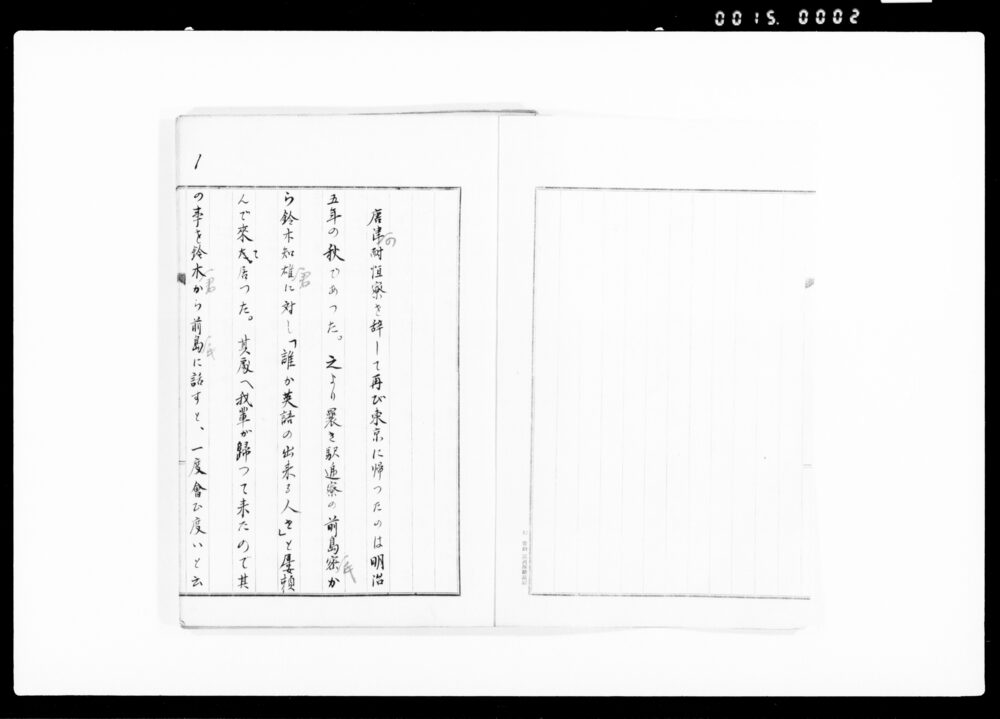 0015. 0002
1
唐津の耐恒寮を辞して再び東京に帰つたのは明治
五年の秋であつた。之より曩き駅逓寮の前島密氏か
ら鈴木知雄君に対し「誰か英語の出来る人を」と屡頼
んで來て居つた。其處へ我輩が歸つて来たので其
の事を鈴木君から前島氏に話すと、一度會ひ度いと云